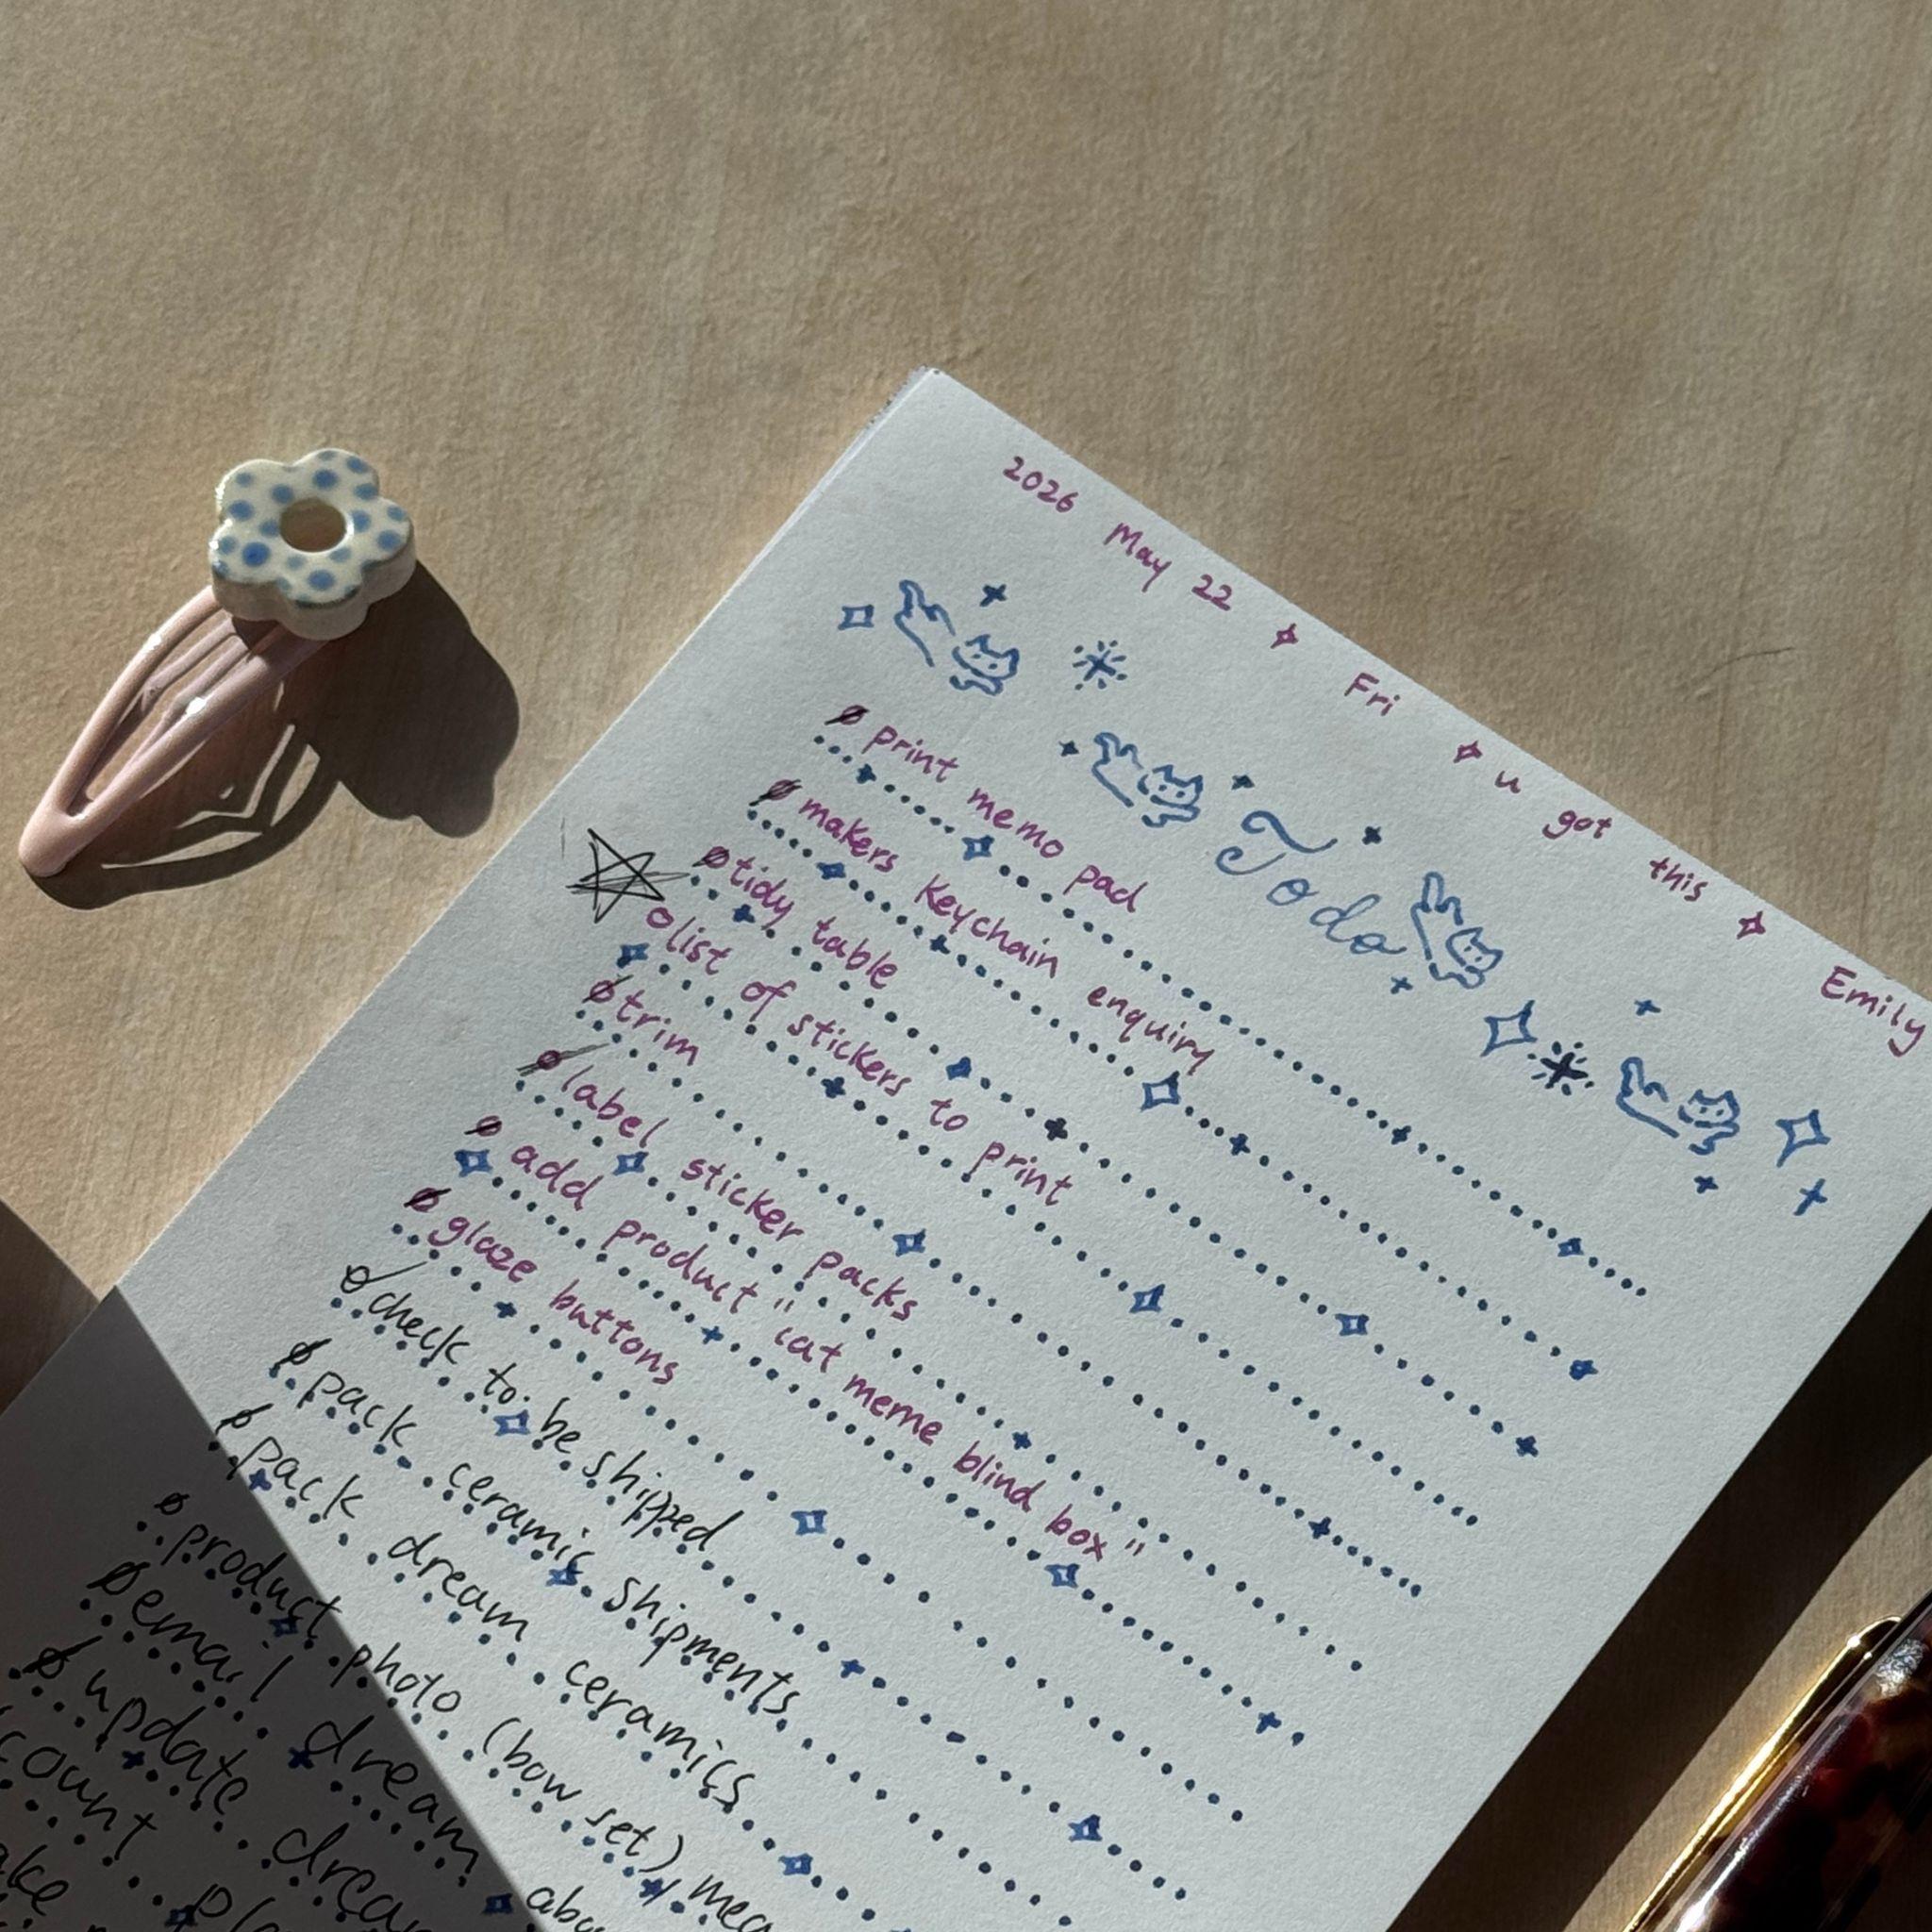 2026 May 22 Fri u got this Emily
Todo
print memo pad
makers keychain enquiry
tidy table
list of stickers to print
trim
label sticker packs
add product "cat meme blind box"
glaze buttons
check to be shipped
pack ceramic shipments
pack dream ceramics
product photo (bow set)
email dream
update
count